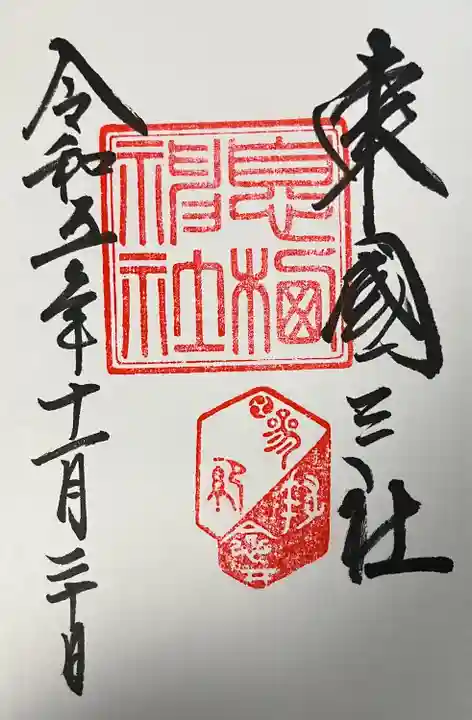 東國三社
息栖
神社
令和五年十一月三十日